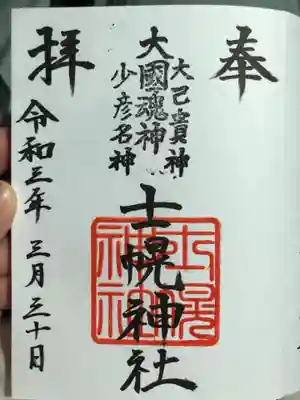 奉
大己貴神
大國魂神
少彦名神
士幌神社
士幌
神社
拝
令和三年三月三十日